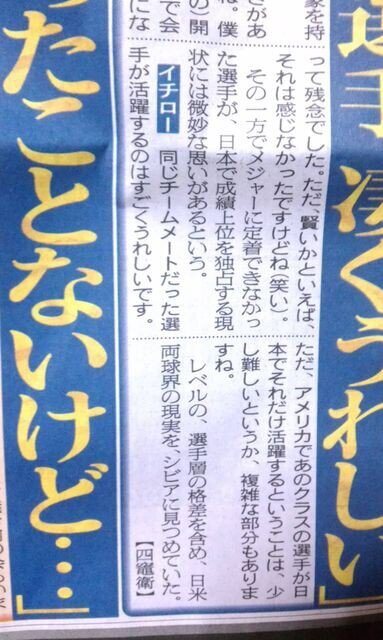 選手、凄くうれしい
を持
があ
ね。僕
の開
で会
にな
って残念でした。ただ、賢いかといえば、
それは感じなかったですけどね(笑い)。
その一方でメジャーに定着できなかっ
た選手が、日本で成績上位を独占する現
状には微妙な思いがあるという。
イチロー　同じチームメートだった選
手が活躍するのはすごくうれしいです。
ただ、アメリカであのクラスの選手が日
本でそれだけ活躍するということは、少
し難しいというか、複雑な部分もありま
すね。
レベルの、選手層の格差を含め、日米
両球界の現実を、シビアに見つめていた。
【四竈衛】
ったことないけど…」